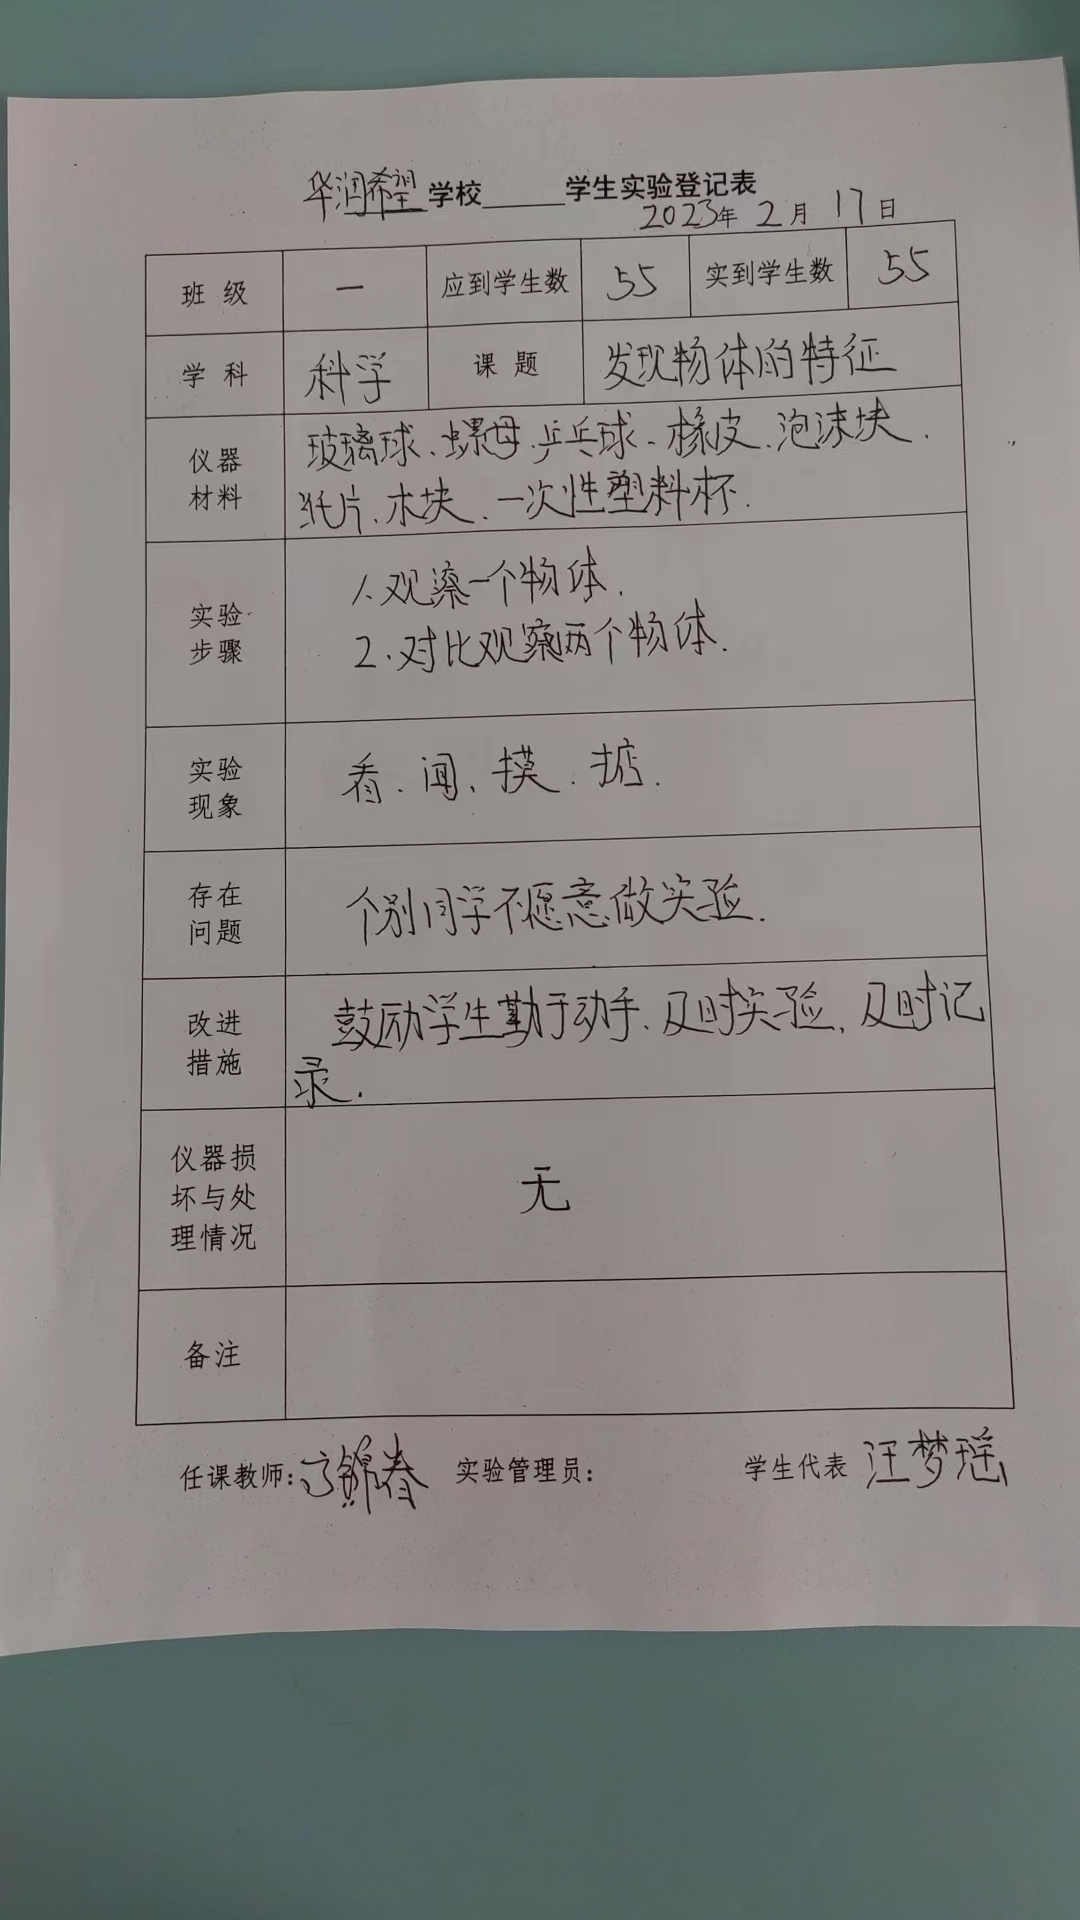 华润希望学校______学生实验登记表
2023年 2月 17日
班 级 一 应到学生数 55 实到学生数 55
学 科 科学 课 题 发现物体的特征
仪器
材料
玻璃球、螺母、乒乓球、橡皮、泡沫块、
纸片、木块、一次性塑料杯.
实验
步骤
1.观察一个物体.
2.对比观察两个物体.
实验
现象
看、闻、摸、掂.
存在
问题
个别同学不愿意做实验.
改进
措施
鼓励学生勤于动手、及时实验、及时记
录.
仪器损
坏与处
理情况
无
备注
任课教师: 锦春 实验管理员: 学生代表 汪梦瑶